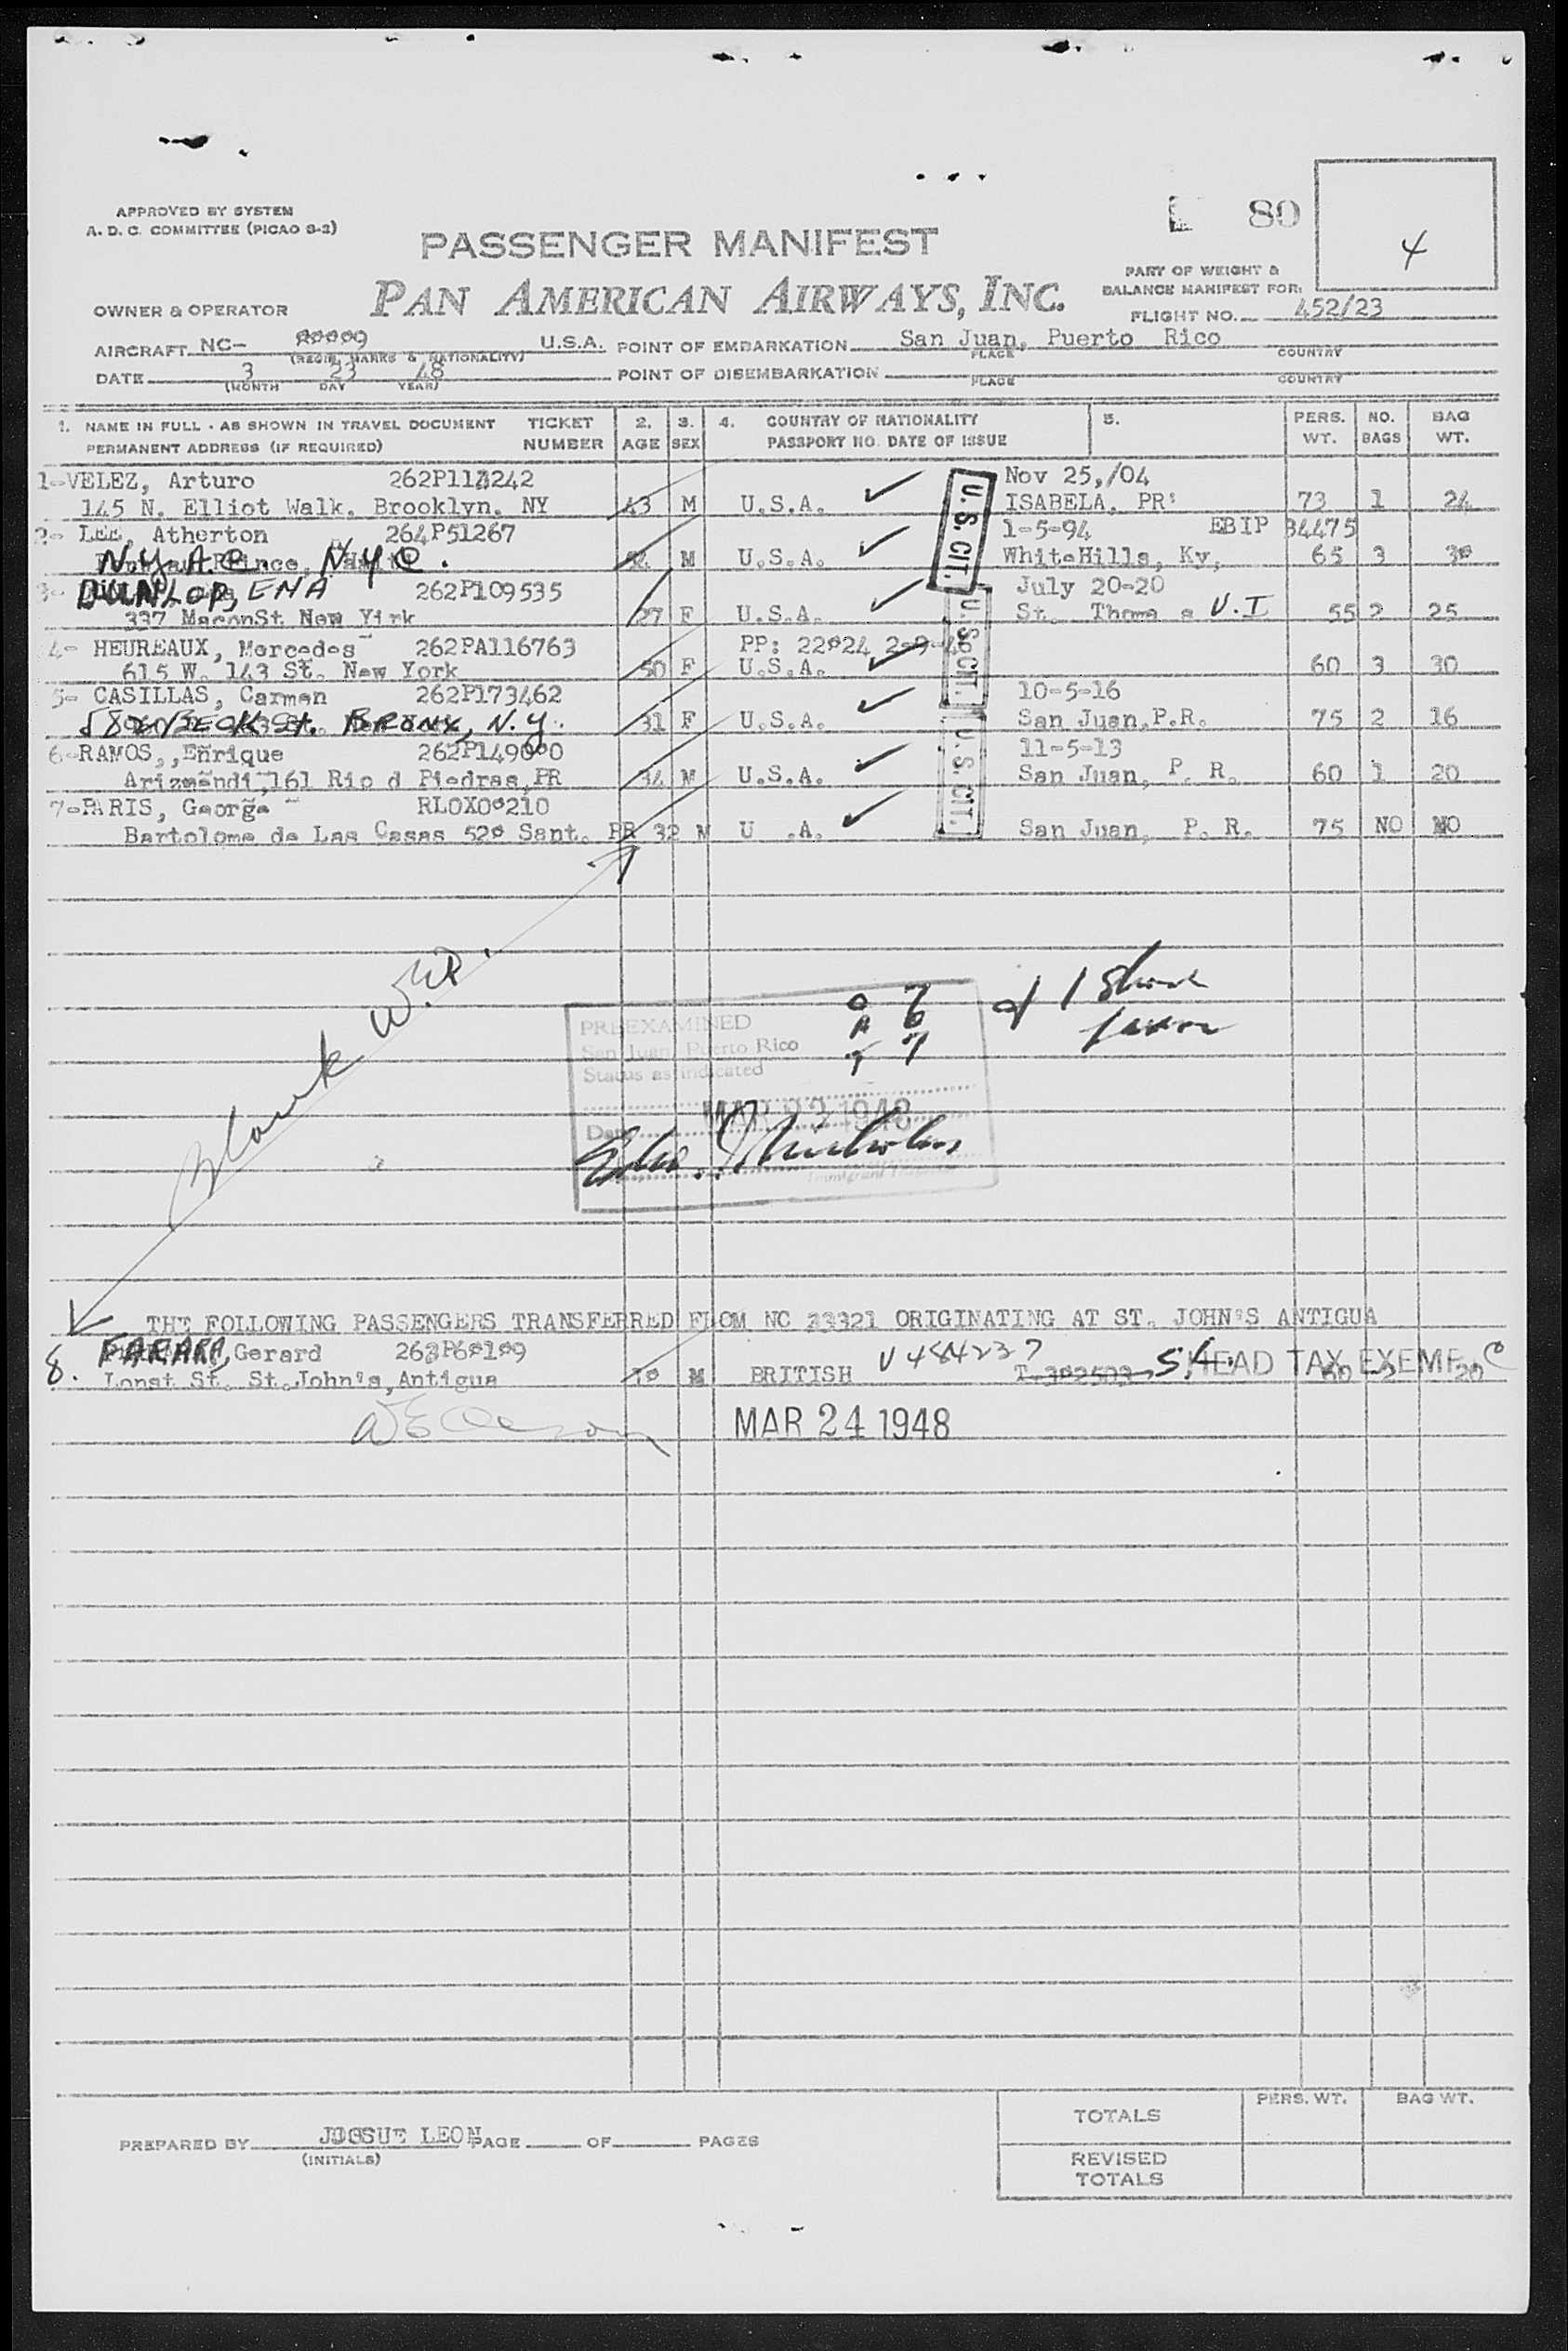 APPROVED BY SYSTEM
A. D. C. COMMITTEE (PICAO 8-2)
80
4
PASSENGER MANIFEST
PAN AMERICAN AIRWAYS, INC.
PART OF WEIGHT &
BALANCE MANIFEST FOR:
FLIGHT NO. 452/23
OWNER & OPERATOR
AIRCRAFT NC- U.S.A. POINT OF EMBARKATION San Juan, Puerto Rico
(REGIS. MARKS & NATIONALITY) PLACE COUNTRY
DATE 3 23 48 POINT OF DISEMBARKATION
(MONTH DAY YEAR) PLACE COUNTRY
1. NAME IN FULL - AS SHOWN IN TRAVEL DOCUMENT TICKET 2. 3. 4. COUNTRY OF NATIONALITY 5. PERS. NO. BAG
PERMANENT ADDRESS (IF REQUIRED) NUMBER AGE SEX PASSPORT NO. DATE OF ISSUE WT. BAGS WT.
1-VELEZ, Arturo Nov 25,/04
145 N. Elliot Walk. Brooklyn. NY 43 M U.S.A. ISABELA, PR' 73 1 24
2- LEE, Atherton 264P51267 1-5-94 EBIP 34475
N.Y.A.C. NYC. M U.S.A. WhiteHills, Ky, 65 3 30
3- DUNLOP, ENA 262P109535 July 20-20
337 MaconSt New Yirk 27 F U.S.A. St. Thoma s V.I 55 2 25
4- HEUREAUX, Mercedes 262PA116763 PP: 22024 2-9-46
615 W. 143 St. New York 50 F U.S.A. 60 3 30
5- CASILLAS, Carmen 262P173462 10-5-16
BECK St. BRONX, N.Y. 31 F U.S.A. San Juan,P.R. 75 2 16
6-RAMOS,,Enrique 262P149000 11-5-13
Arizmendi,161 Rio d Piedras,PR 34 M U.S.A. San Juan, P. R. 60 1 20
7-PARIS, George RLOX00210
Bartolome de Las Casas 520 Sant. PR 32 M U .A. San Juan, P. R. 75 NO NO
U.S. CIT.
U.S. CIT.
U.S. CIT.
Blank W.E.O.
PREEXAMINED
San Juan, Puerto Rico
Status as indicated
Date MAR 23 1948
O 7
A 0
T 7
THE FOLLOWING PASSENGERS TRANSFERRED FROM NC 33321 ORIGINATING AT ST. JOHN'S ANTIGUA
8. FARARA, Gerard 263P60109 V484237
St. St.John's,Antigua M BRITISH HEAD TAX EXEMP. 20
MAR 24 1948
PREPARED BY JOSSUE LEON PAGE OF PAGES
(INITIALS)
PERS. WT. BAG WT.
TOTALS
REVISED
TOTALS